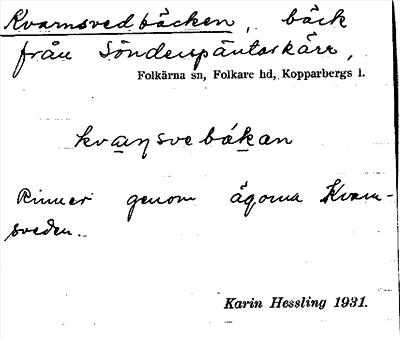 Kvarnsvedbäcken, bäck
från Sönderpäntarkärr,
Folkärna sn, Folkare hd, Kopparbergs l.
kvaŋsvebäkan
Rinner genom ägorna Kvarn-
sveden.
Karin Hessling 1931.